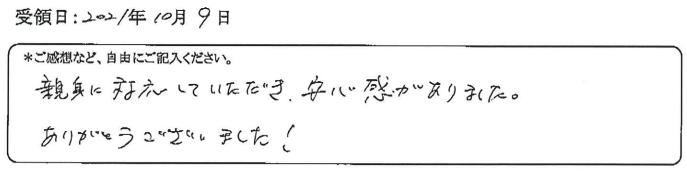 受領日:2021年10月9日
*ご感想など、自由にご記入ください。
親身に対応していただき、安心感がありました。
ありがとうございました!